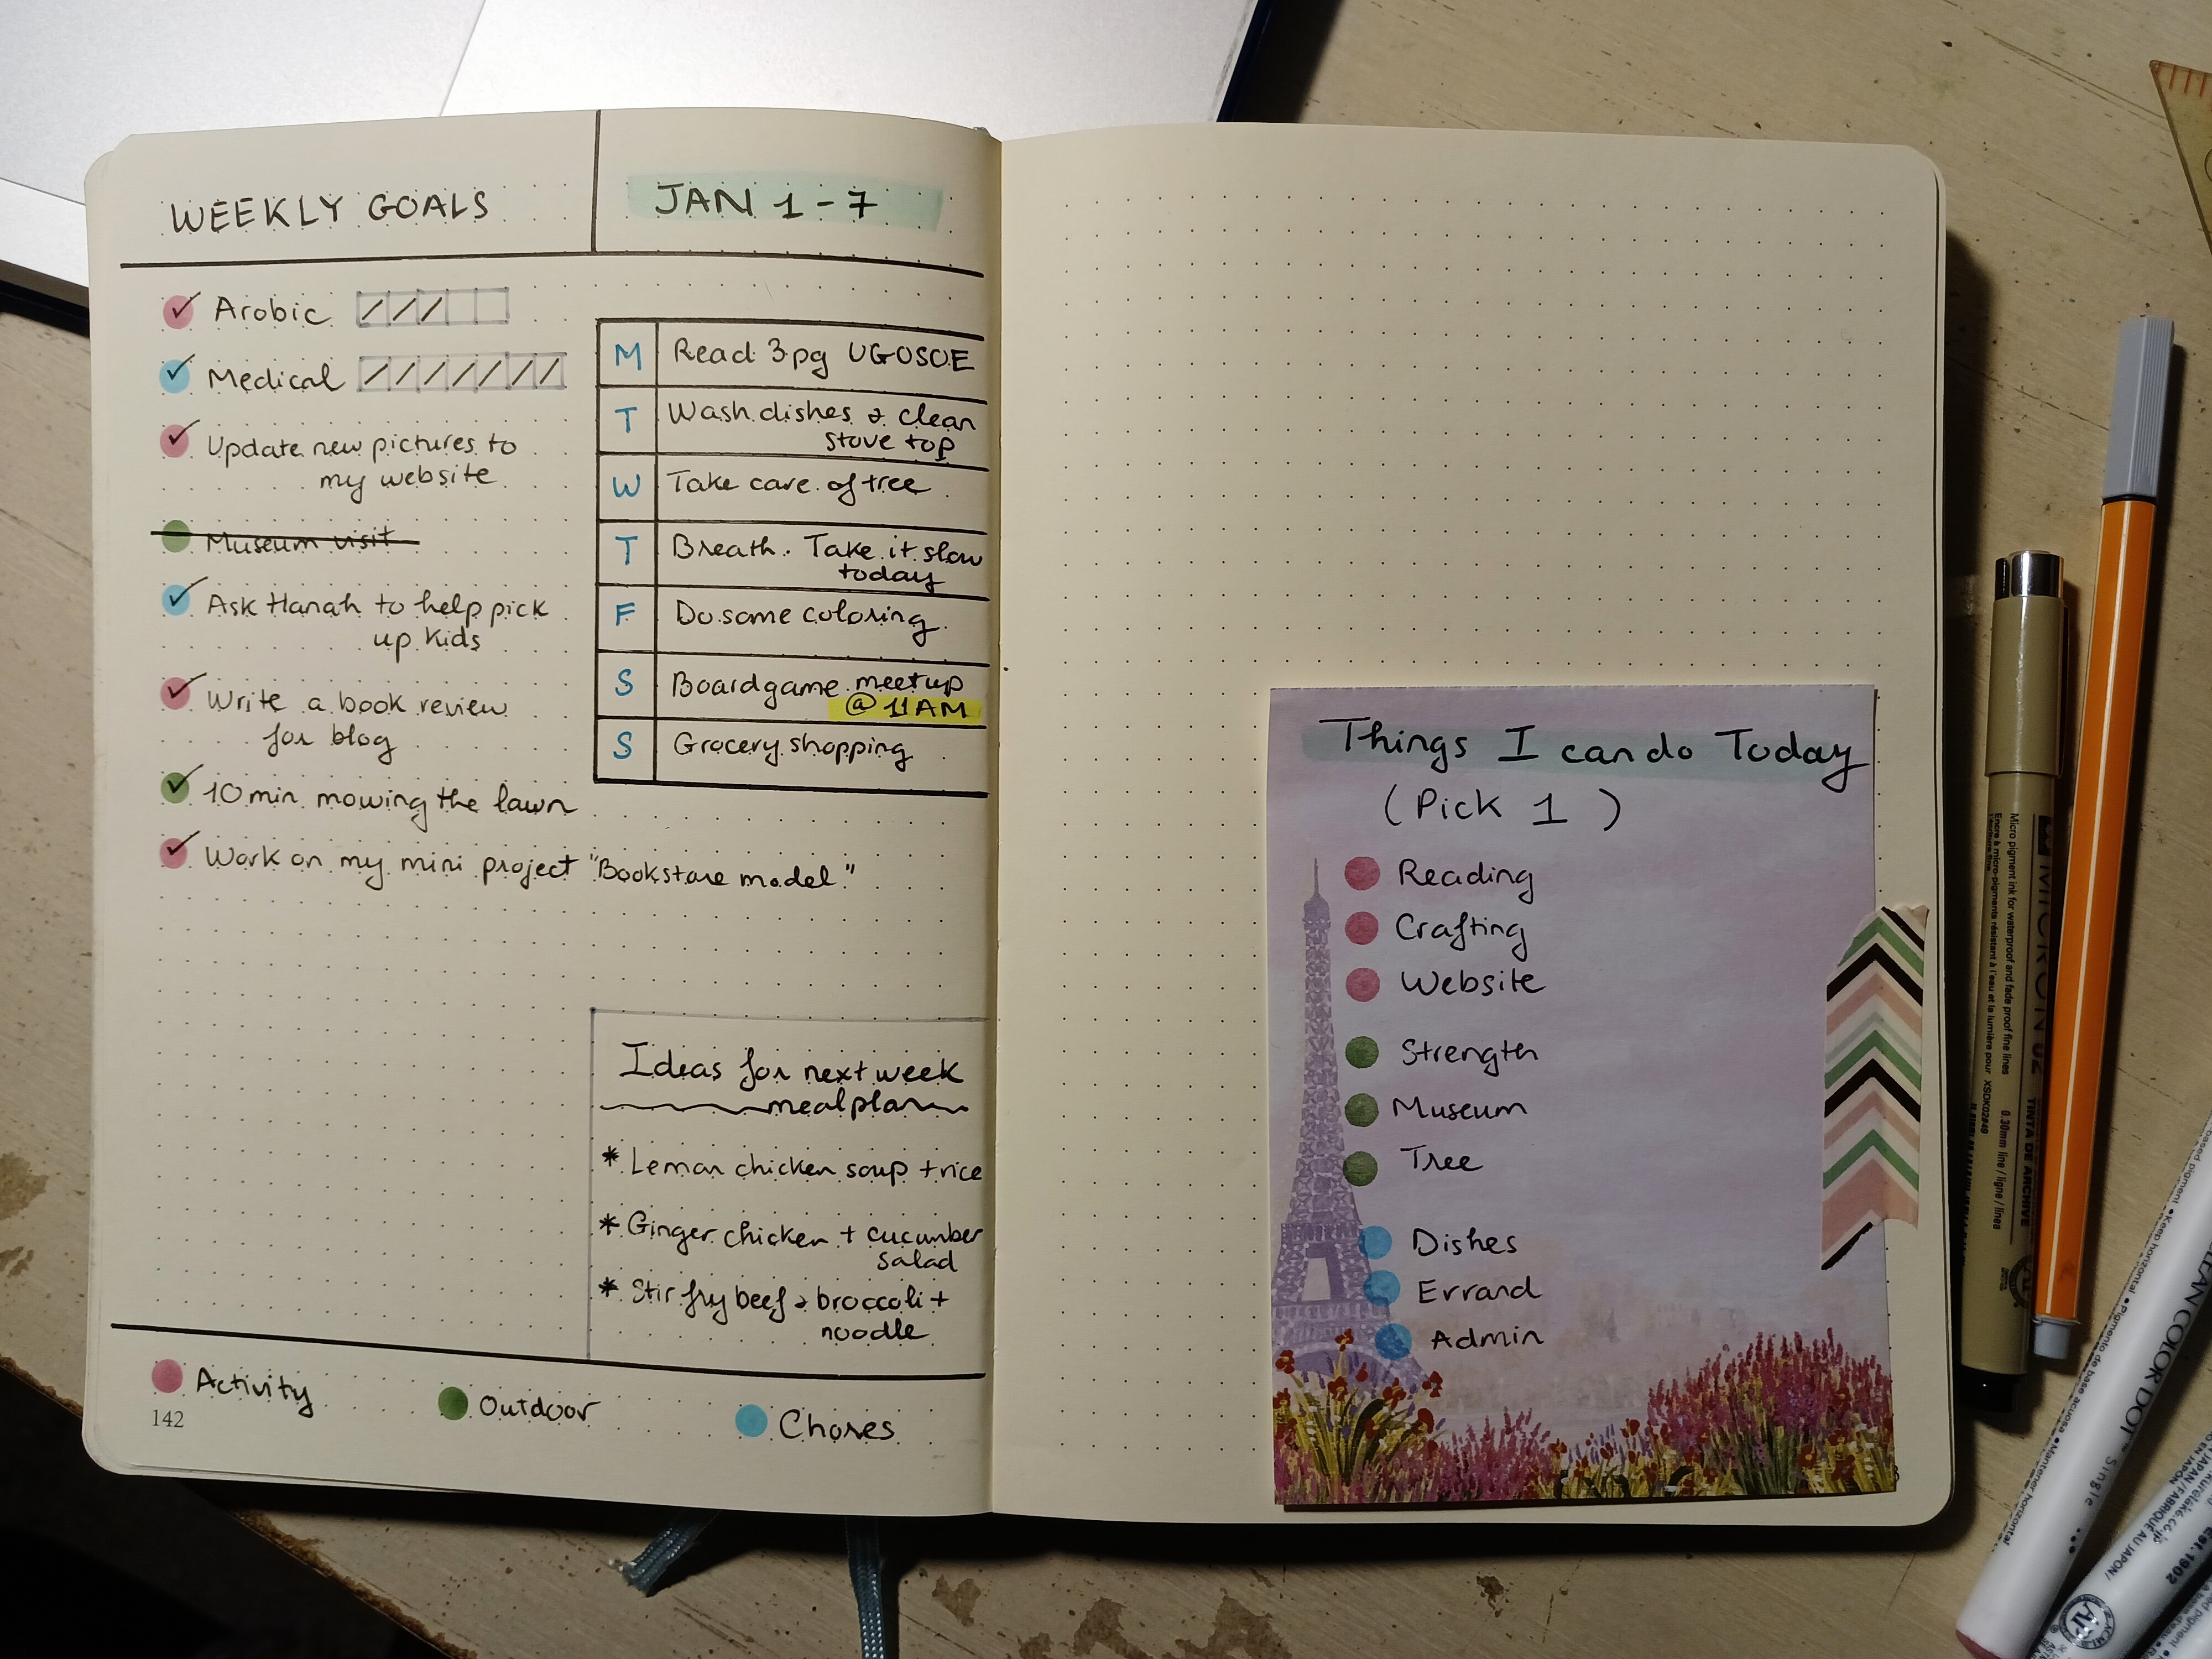 WEEKLY GOALS
JAN 1-7
Arobic
Medical
Update new pictures to
my website
Museum visit
Ask Hanah to help pick
up kids
Write a book review
for blog
10 min mowing the lawn
Work on my mini project "Bookstore model"
M Read 3pg UGOSOE
T Wash dishes & clean
stove top
W Take care of tree
T Breath. Take it slow
today
F Do some coloring
S Boardgame meetup
@ 11AM
S Grocery shopping
Ideas for next week
meal plan
* Lemon chicken soup + rice
* Ginger chicken + cucumber
salad
* Stir fry beef & broccoli +
noodle
Activity
Outdoor
Chores
142
Things I can do Today
(Pick 1)
Reading
Crafting
Website
Strength
Museum
Tree
Dishes
Errand
Admin
MICRON 02
Micro pigment ink for waterproof and fade proof fine lines
XSDK02#49
0.30mm line / ligne / línea
TINTA DE ARCHIVE
CLEAN COLOR DOT Single